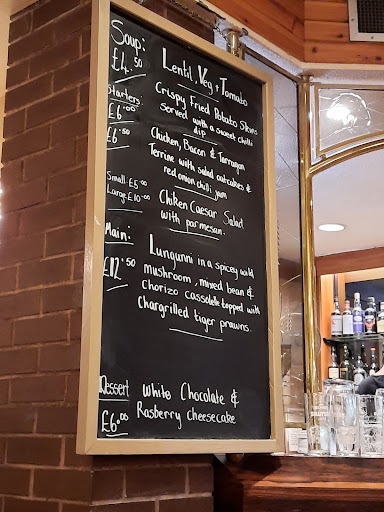 Soup: Lentil, Veg + Tomato
£4.50
Starters: Crispy Fried Potato Skins
£6.00 served with a sweet chilli
dip
£6.50 Chicken, Bacon & Tarragon
Terrine with salad, oatcakes &
red onion chilli jam
Small £5.00 Chiken Caesar Salad
Large £10.00 with parmesan.
Main: Lungunni in a spicey wild
£12.50 mushroom, mixed bean &
Chorizo cassolette topped with
Chargrilled tiger prawns.
Dessert White Chocolate &
£6.00 Rasberry cheesecake